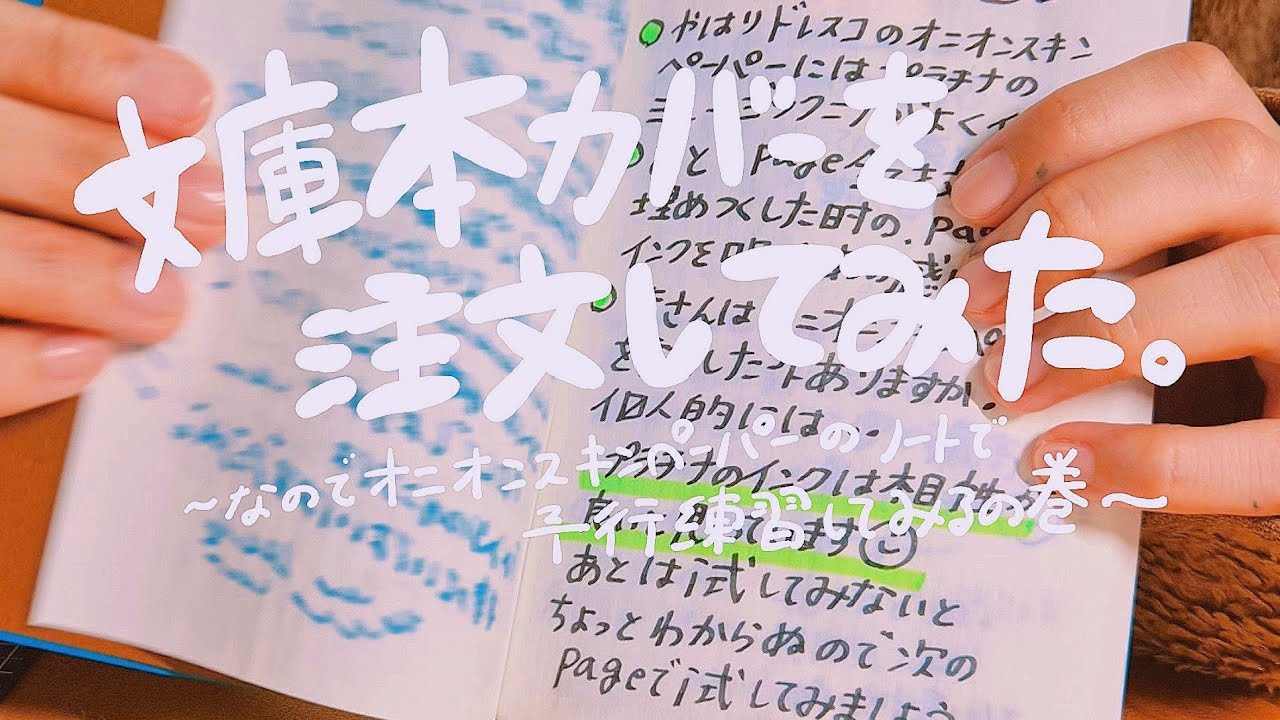 文庫本カバーを
注文してみた。
〜なのでオニオンスキンペーパーのノートで
平行練習してみるの巻〜
やはりドレスコのオニオンスキン
ペーパーにはプラチナの
ミュージックニブがよくイ
と Page全 
埋めつくした時の、pa
インクを
さんはオニオン
した 
個人的には・・
プラチナのインクは相性が
良 ます
あとは試してみないと
ちょっとわからぬので次の
Pageで試してみましょう